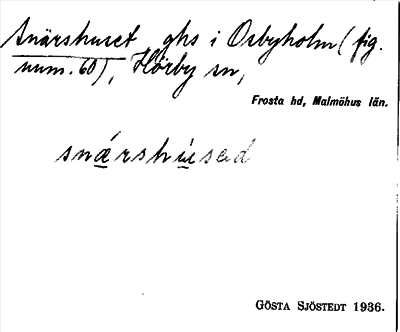 Snärshuset ghs i Osbyholm (fig.
num. 60), Hörby sn,
Frosta hd, Malmöhus län.
snǽrshúsəd
GÖSTA SJÖSTEDT 1936.